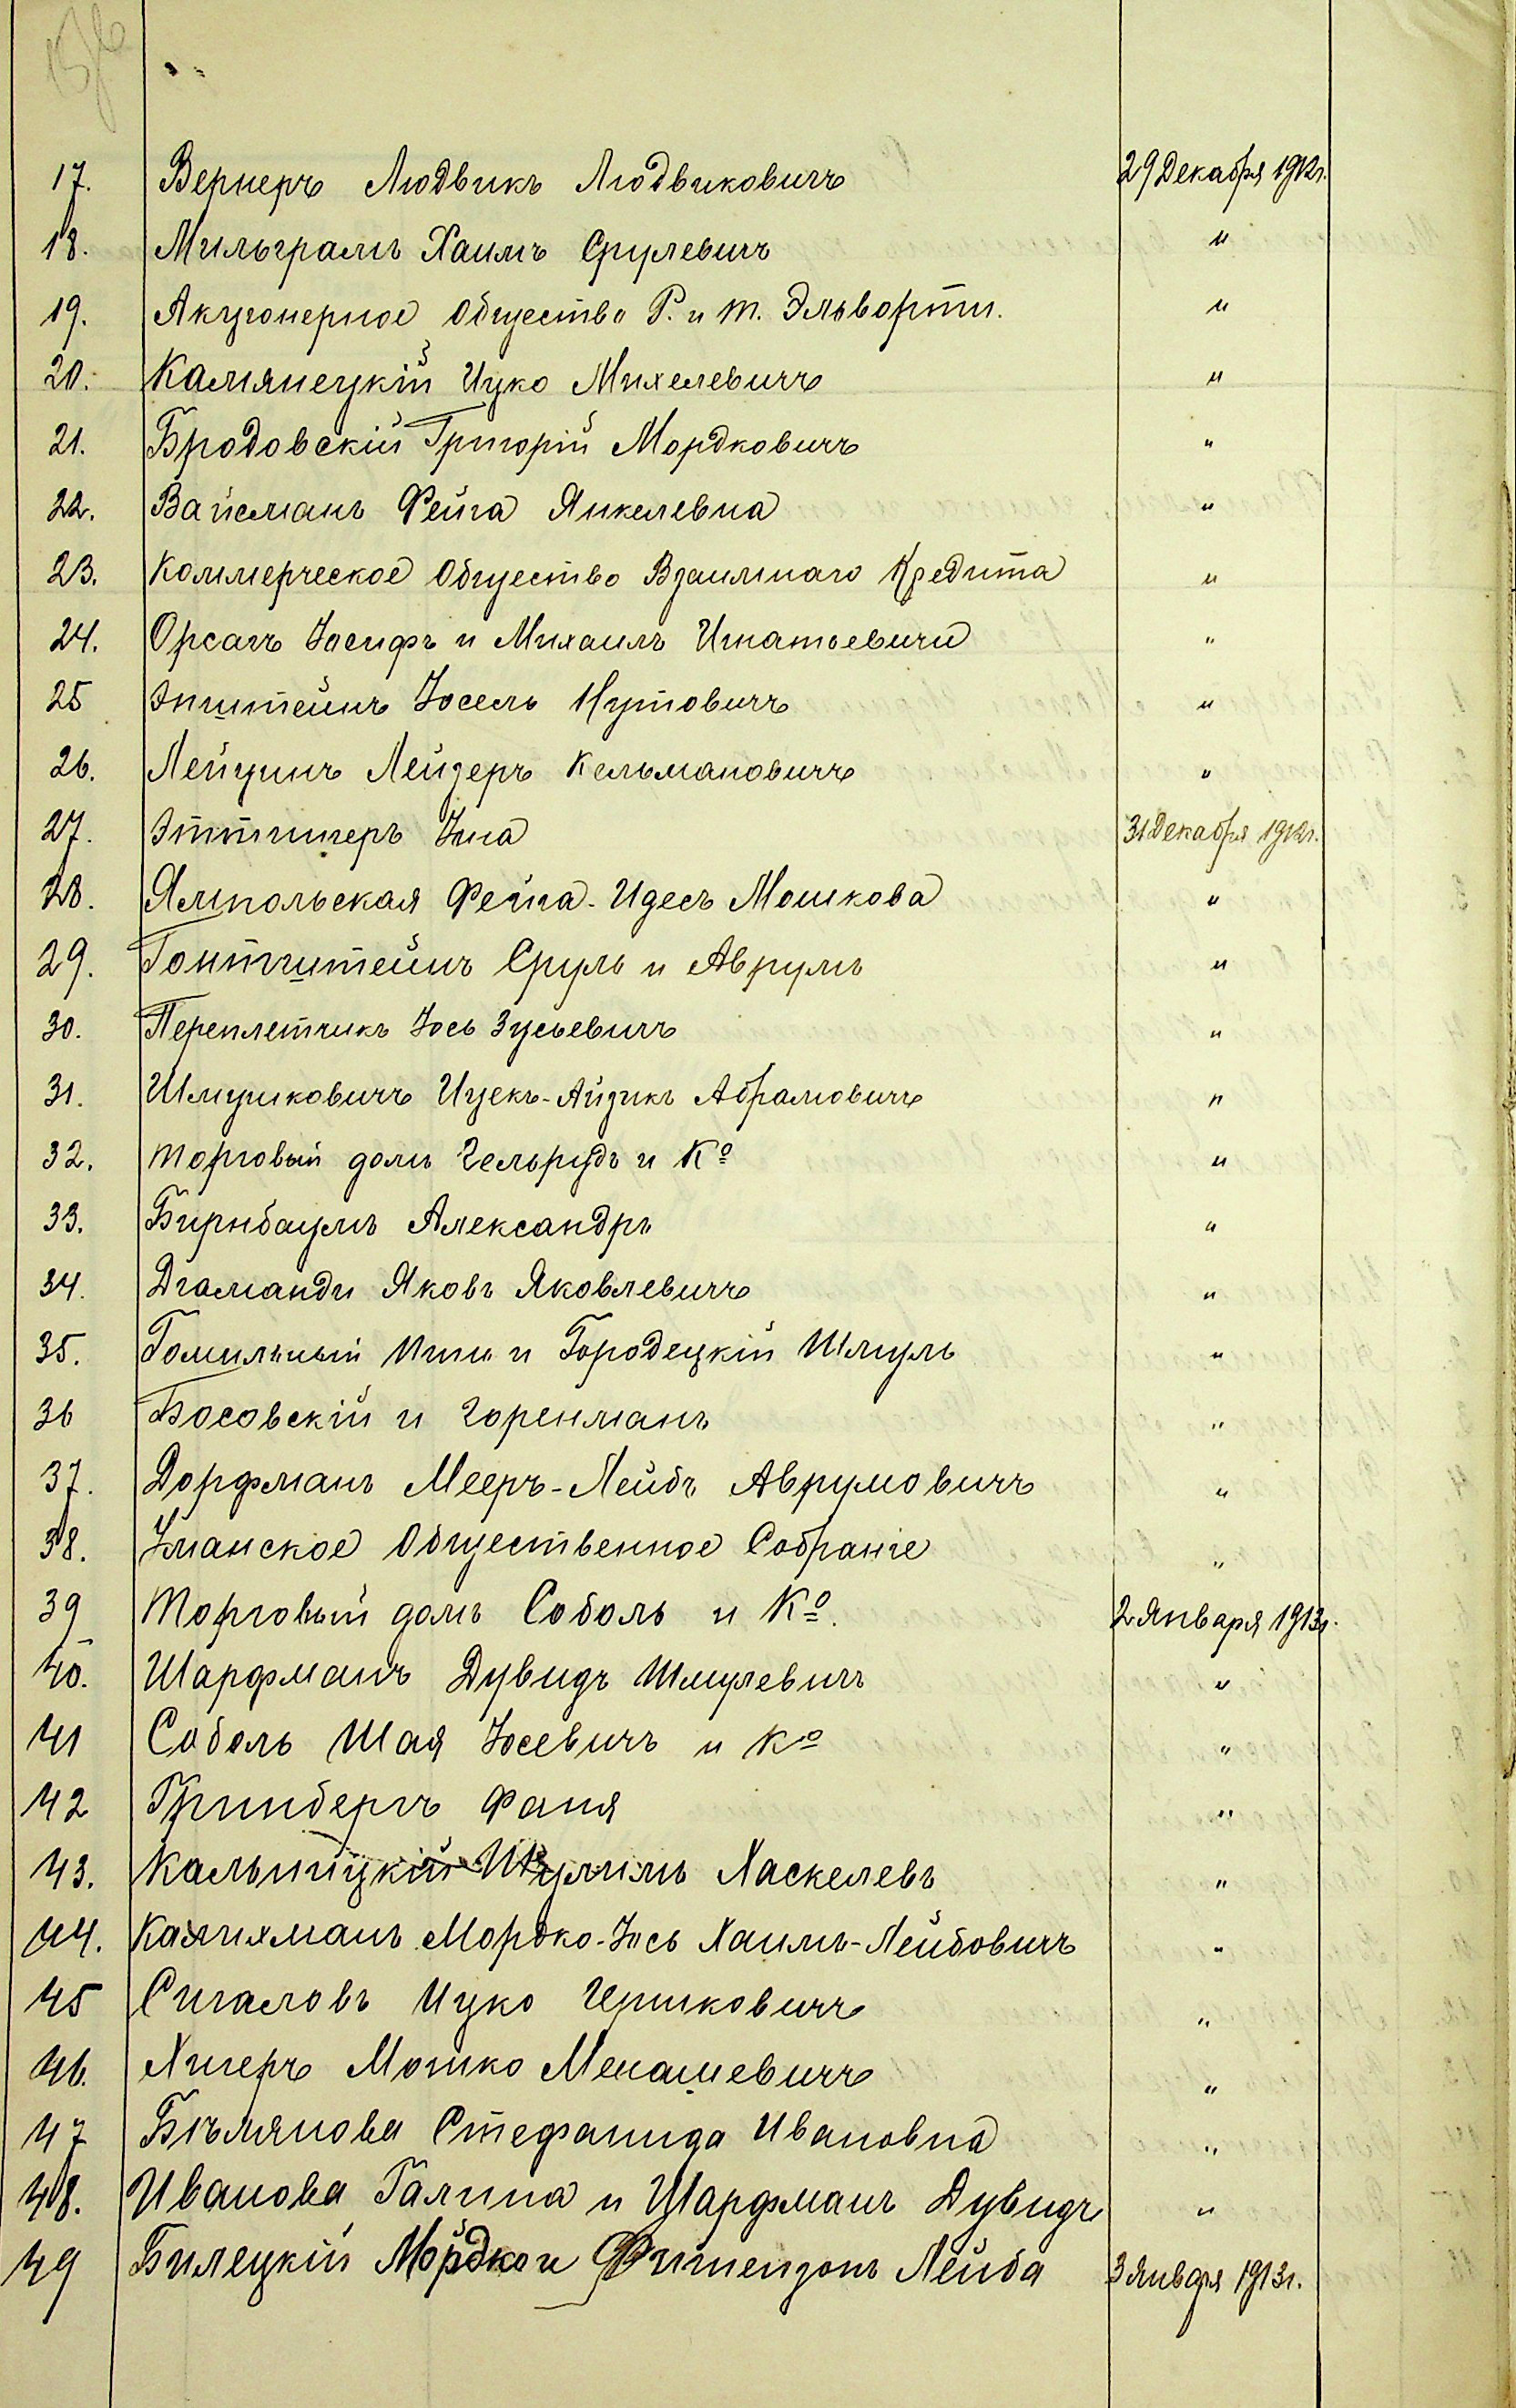 17. Вернеръ Людвикъ Людвиковичъ 29 Декабря 1912г.
18. Мильграмъ Хаимъ Срулевичъ "
19. Акціонерное Общество Р. и Т. Эльворти. "
20. Камянецкій Ицко Михелевичъ "
21. Бродовскій Григорій Мордковичъ "
22. Вайсманъ Фейга Янкелевна "
23. Коммерческое Общество Взаимнаго Кредита "
24. Орсагъ Іосифъ и Михаилъ Игнатьевичи "
25 Эпштейнъ Іосель Нутовичъ "
26. Лейцинъ Лейзеръ Кельмановичъ "
27. Эттингеръ Іона 31 Декабря 1912г.
28. Ямпольская Фейга-Идесъ Мошкова "
29. Гонтштейнъ Сруль и Аврумъ "
30. Переплетчикъ Іось Зусьевичъ "
31. Шмушковичъ Ицекъ-Айзикъ Абрамовичъ "
32. Торговый домъ Гельрудъ и Кº "
33. Бирнбаумъ Александръ "
34. Діаманди Яковъ Яковлевичъ "
35. Гомильный и Городецкій Шмуль "
36 Босовскій и Горенманъ "
37. Дорфманъ Мееръ-Лейбъ Аврумовичъ "
38. Уманское Общественное Собраніе "
39 Торговый домъ Соболь и Кº. 2 Января 1913г.
40. Шарфманъ Дувидъ Шмулевичъ "
41 Соболь Шая Іосевичъ и Кº "
42 Гринбергъ Фаня "
43. Кальницкій Шулимъ Хаскелевъ "
44. Калихманъ Мордко-Іось Хаимъ-Лейбовичъ "
45 Сигаловъ Ицко Гершковичъ "
46. Хигеръ Мошко Менашевичъ "
47 Бѣлянова Стефанида Ивановна "
48. Иванова Галина и Шарфманъ Дувидъ "
49 Билецкій Мордко и Фишензонъ Лейба 3 Января 1913г.